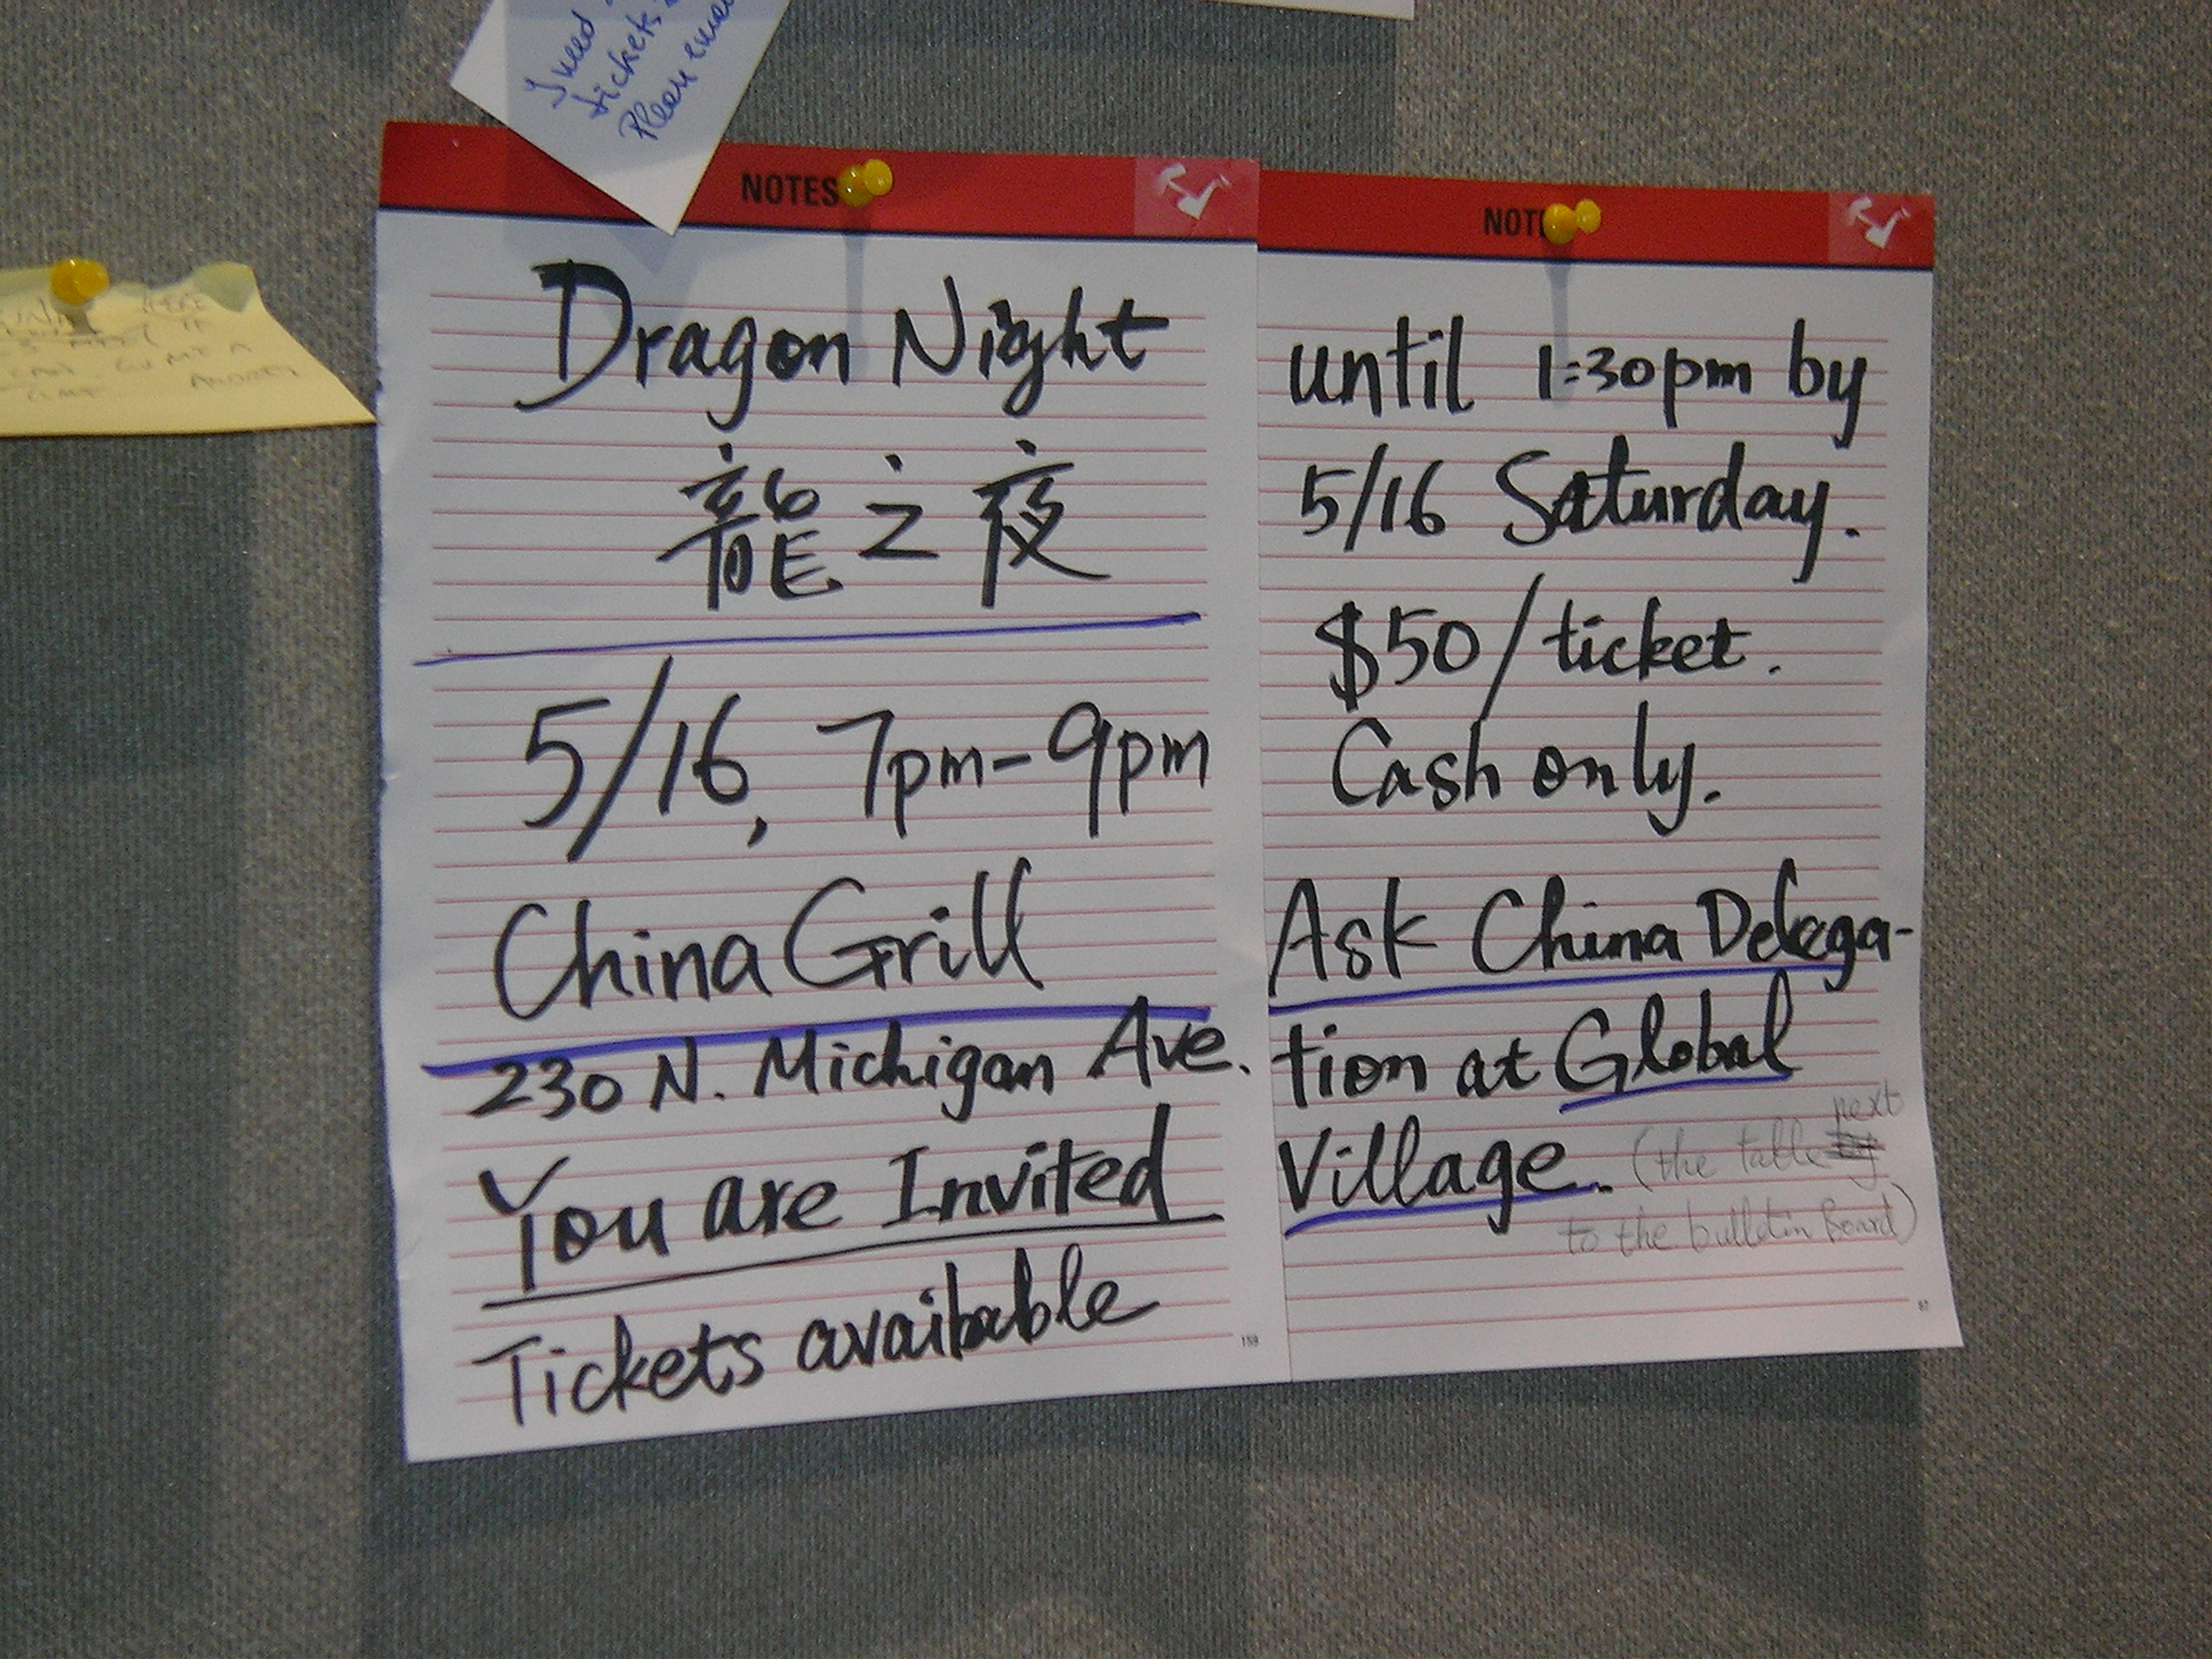 I need
tickets
Please email
NOTES
Dragon Night
龍之夜
5/16, 7pm-9pm
China Grill
230 N. Michigan Ave.
You are Invited
Tickets available
159
NOTE
until 1:30pm by
5/16 Saturday.
$50/ticket.
Cash only.
Ask China Delega-
tion at Global
Village. (the table next
to the bulletin Board)